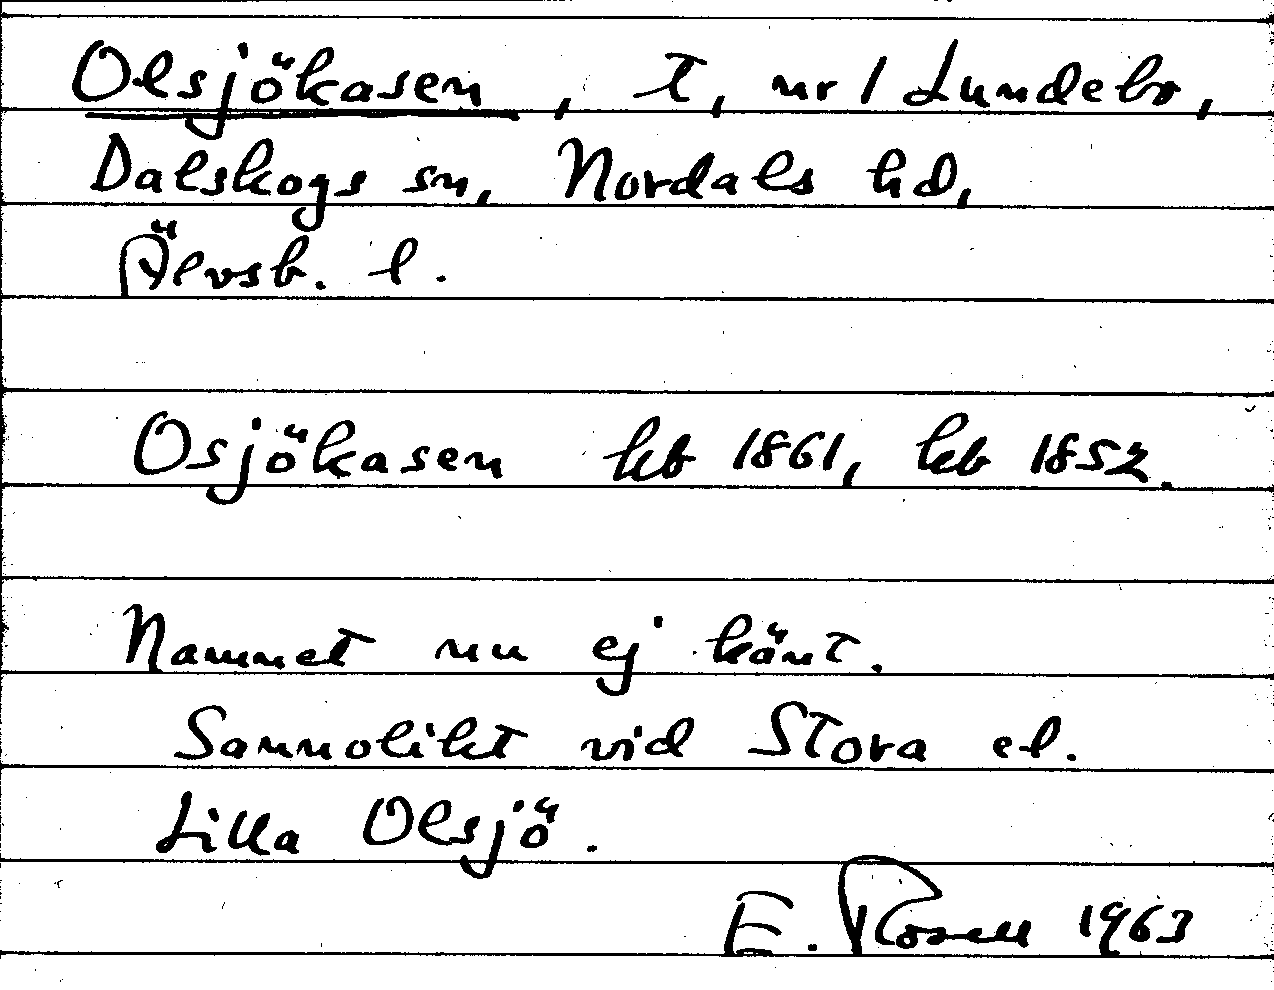 Olsjökasen, t, nr 1 Lundebo,
Dalskogs sn, Nordals hd,
Älvsb. l.
Osjökasen hfb 1861, hfb 1852.
Namnet nu ej känt.
Sannolikt vid Stora el.
Lilla Olsjö.
E. Rosell 1963